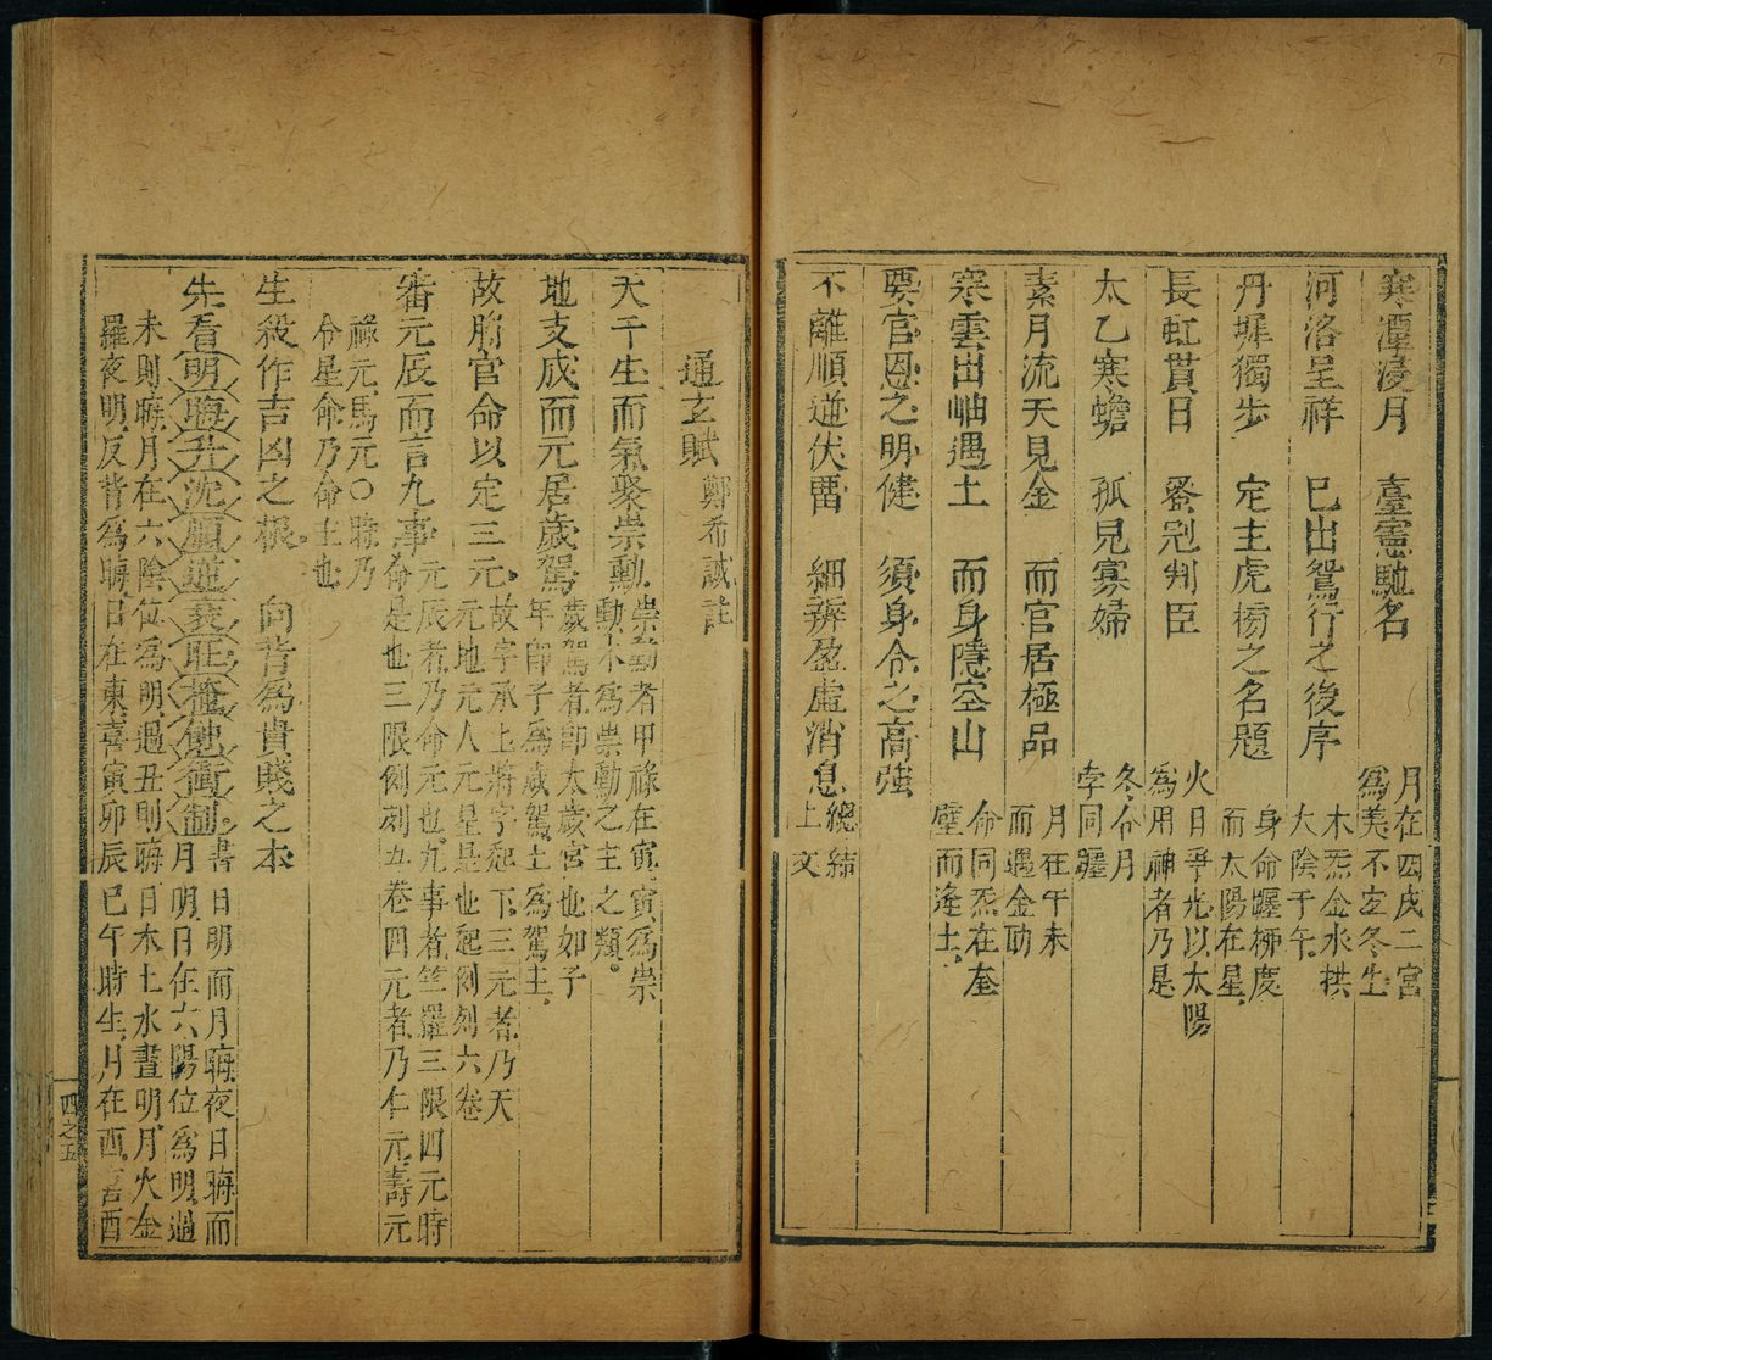 寒潭浸月　臺憲馳名　月在四戌二宮
爲美不宜冬生
河洛呈祥　已出鴛行之後序　木炁金水拱
大陰于午
丹墀獨步　定主虎榜之名題　身命躔柳度
而太陽在星
長虹貫日　孤剋判臣　火日爭光以太陽
爲用神者乃是
太乙寒蟾　孤兒寡婦　冬令月
孛同躔
素月流天見金　而官居極品　月在午未
而遇金助
寒雲出岫遇土　而身隱空山　命同炁在奎
壁而逢土
要官恩之明健　須身令之高強
不離順逆伏留　細辨盈虛消息　總結
上文
通玄賦　鄭希誠註
天干生而氣聚崇勳　崇勳者甲祿在寅寅爲崇
勳木爲崇勳之主之類
地支成而元居歲駕　歲駕者即太歲宮也如子
年即子爲歲駕土爲駕主
故胎官命以定三元　故字承上將字起下三元者乃天
元地元人元星是也起例列六卷
審元辰而言九事　元辰者乃命元也九事者竺羅三限四元時
命是也三限例列五卷四元者乃仁元壽元
祿元馬元〇時乃
令星命乃命主也
生殺作吉凶之根　向背爲貴賤之本
先看明晦升沈順逆衰旺權勉衝制　書日明而月晦夜日晦而
月明日在六陽位爲明過
未則晦月在六陰位爲明過丑則晦日木土水晝明月火金
羅夜明反背爲晦日在東喜寅卯辰巳午時生月在西喜酉
四之五